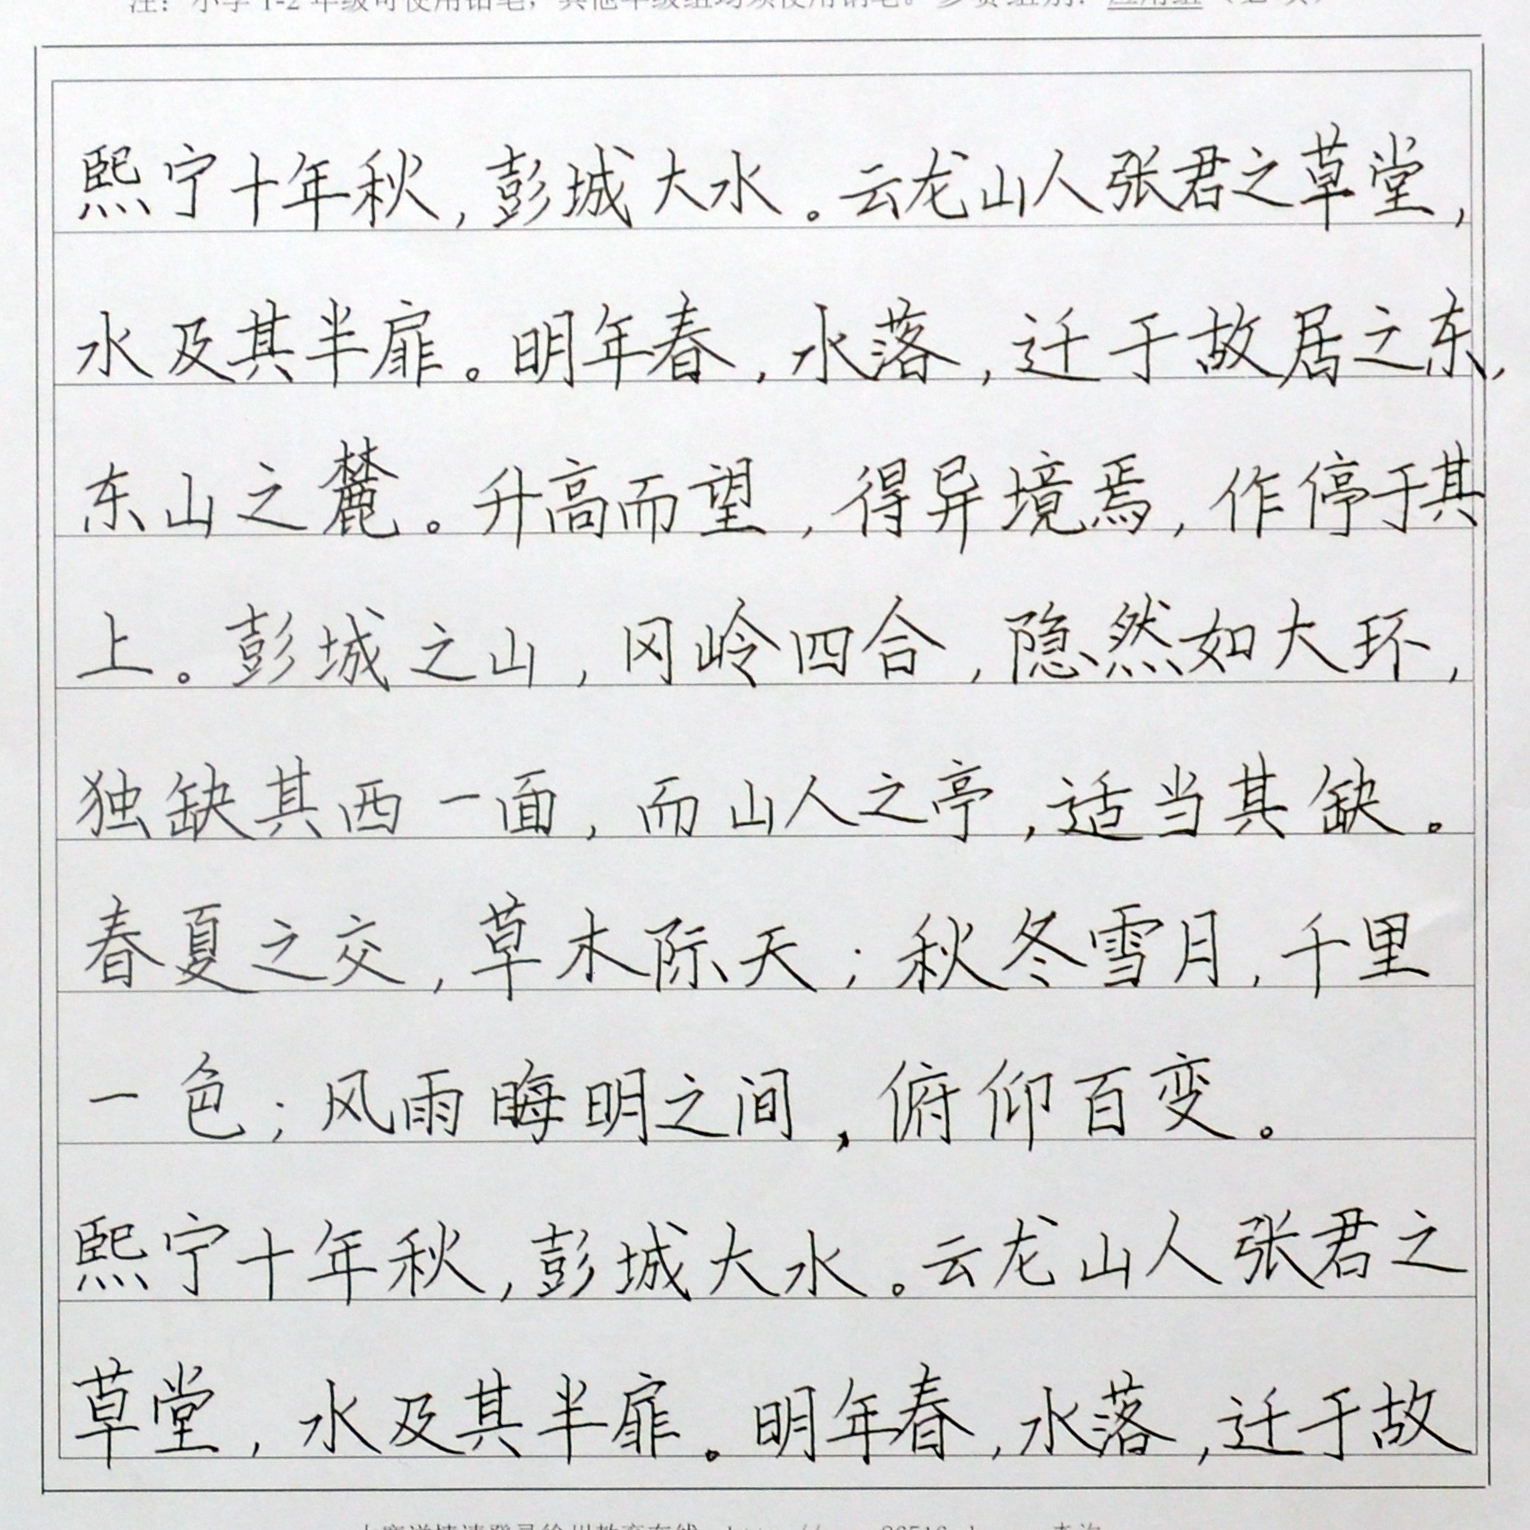 熙宁十年秋，彭城大水。云龙山人张君之草堂，
水及其半扉。明年春，水落，迁于故居之东，
东山之麓。升高而望，得异境焉，作停于其
上。彭城之山，冈岭四合，隐然如大环，
独缺其西一面，而山人之亭，适当其缺。
春夏之交，草木际天；秋冬雪月，千里
一色；风雨晦明之间，俯仰百变。
熙宁十年秋，彭城大水。云龙山人张君之
草堂，水及其半扉。明年春，水落，迁于故